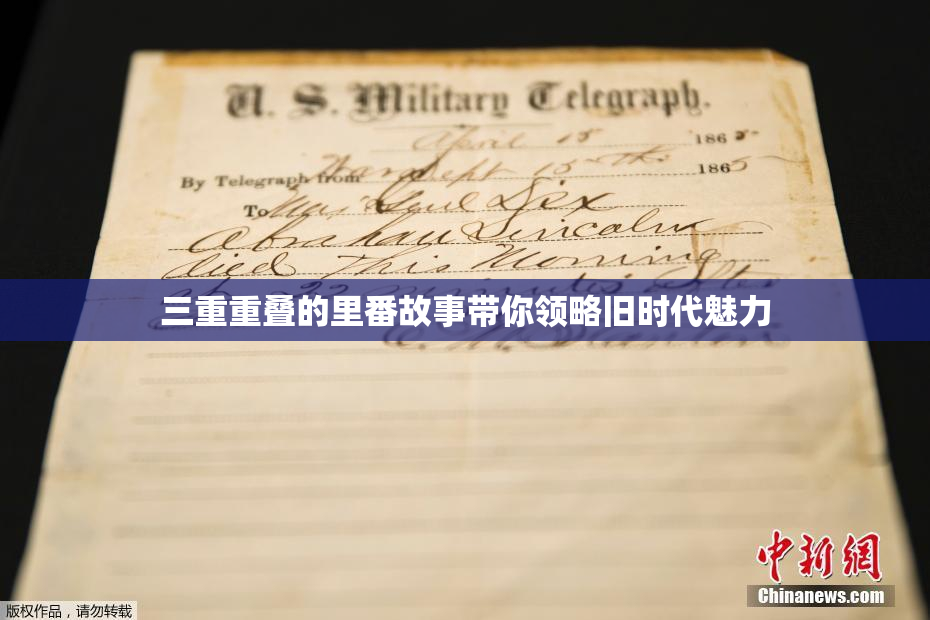 U. S. Military Telegraph.
April 15 1865-
By Telegraph from War Dept 15th 1865
To Maj Genl Dix
Abraham Lincoln
died This Morning
at 22 minutes after
三重重叠的里番故事带你领略旧时代魅力
E. M. Stanton
中新網
Chinanews.com
版权作品,请勿转载